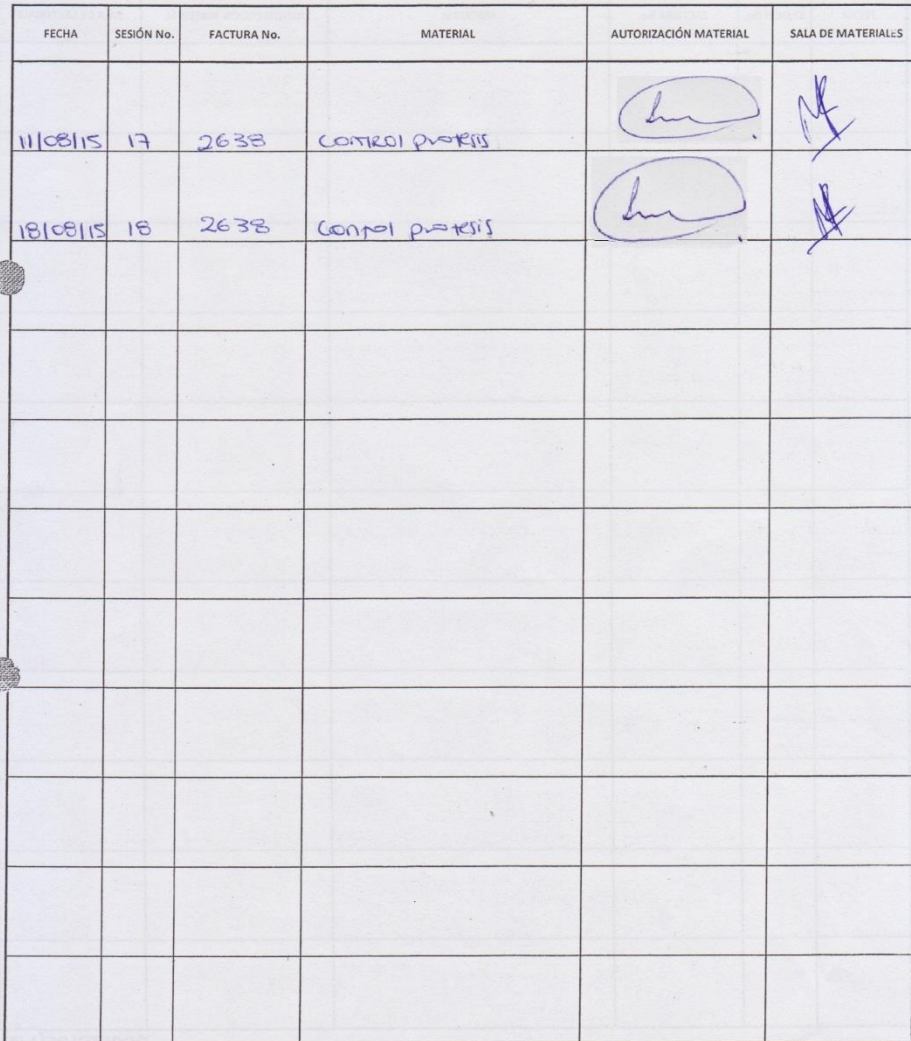 FECHA SESIÓN No. FACTURA No. MATERIAL AUTORIZACIÓN MATERIAL SALA DE MATERIALES
11/08/15 17 2638 Control protesis
18/08/15 18 2638 Control protesis